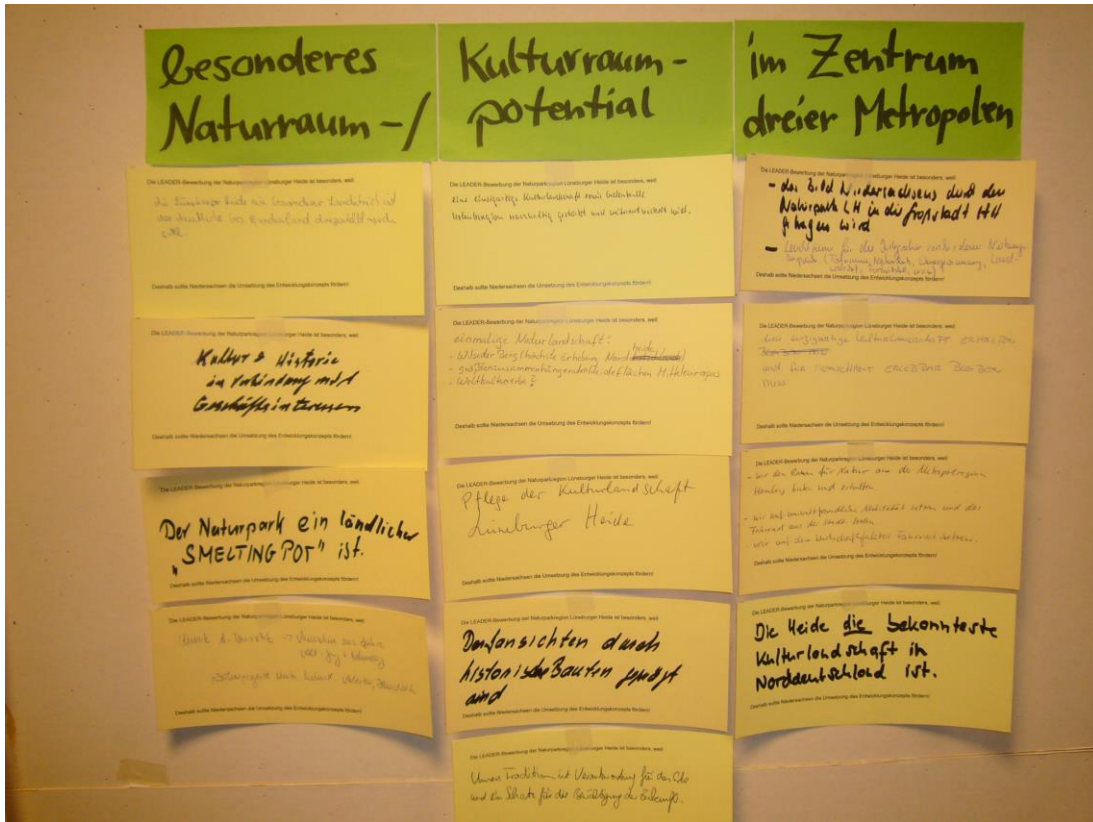 besonderes
Naturraum-/
Die LEADER-Bewerbung der Naturparkregion Lüneburger Heide ist besonders, weil:
die Lüneburger Heide ein besonderer Landstrich ist
das deutliche im Bundesland dargestellt werden
soll.
Deshalb sollte Niedersachsen die Umsetzung des Entwicklungskonzepts fördern!
Die LEADER-Bewerbung der Naturparkregion Lüneburger Heide ist besonders, weil:
Kultur & Historie
in Verbindung mit
Geschäftsinteressen
Deshalb sollte Niedersachsen die Umsetzung des Entwicklungskonzepts fördern!
Die LEADER-Bewerbung der Naturparkregion Lüneburger Heide ist besonders, weil:
Der Naturpark ein ländlicher
„SMELTING POT" ist.
Deshalb sollte Niedersachsen die Umsetzung des Entwicklungskonzepts fördern!
Die LEADER-Bewerbung der Naturparkregion Lüneburger Heide ist besonders, weil:
Deshalb sollte Niedersachsen die Umsetzung des Entwicklungskonzepts fördern!
Kulturraum-
potential
Die LEADER-Bewerbung der Naturparkregion Lüneburger Heide ist besonders, weil:
eine einzigartige Kulturlandschaft
nachhaltig und weiterentwickelt wird.
Deshalb sollte Niedersachsen die Umsetzung des Entwicklungskonzepts fördern!
Die LEADER-Bewerbung der Naturparkregion Lüneburger Heide ist besonders, weil:
einmalige Naturlandschaft:
- Wilseder Berg höchste Erhebung Nord heide
- größten zusammenhängenden Heideflächen Mitteleuropas
- Weltkulturerbe?
Deshalb sollte Niedersachsen die Umsetzung des Entwicklungskonzepts fördern!
Die LEADER-Bewerbung der Naturparkregion Lüneburger Heide ist besonders, weil:
Pflege der Kulturlandschaft
Lüneburger Heide
Deshalb sollte Niedersachsen die Umsetzung des Entwicklungskonzepts fördern!
Die LEADER-Bewerbung der Naturparkregion Lüneburger Heide ist besonders, weil:
Dorfansichten durch
historische Bauten geprägt
sind
Deshalb sollte Niedersachsen die Umsetzung des Entwicklungskonzepts fördern!
Die LEADER-Bewerbung der Naturparkregion Lüneburger Heide ist besonders, weil:
Unsere Tradition ist Verantwortung für das Erbe
und ein Schatz für die Bewältigung der Zukunft.
im Zentrum
dreier Metropolen
Die LEADER-Bewerbung der Naturparkregion Lüneburger Heide ist besonders, weil:
- das Bild Niedersachsens durch den
Naturpark LH in die Großstadt HH
getragen wird
- für die Integration verschiedener Nutzungs-
Deshalb sollte Niedersachsen die Umsetzung des Entwicklungskonzepts fördern!
Die LEADER-Bewerbung der Naturparkregion Lüneburger Heide ist besonders, weil:
einzigartige Kulturlandschaft
und erlebbar
muss
Deshalb sollte Niedersachsen die Umsetzung des Entwicklungskonzepts fördern!
Die LEADER-Bewerbung der Naturparkregion Lüneburger Heide ist besonders, weil:
- wir den Raum für Natur aus der Metropolregion
Hamburg bieten und erhalten
- wir auf umweltfreundliche Mobilität setzen und das
Fahrrad aus der Heide
- wir auf den Wirtschaftsfaktor Fahrrad setzen.
Deshalb sollte Niedersachsen die Umsetzung des Entwicklungskonzepts fördern!
Die LEADER-Bewerbung der Naturparkregion Lüneburger Heide ist besonders, weil:
Die Heide die bekannteste
Kulturlandschaft in
Norddeutschland ist.
Deshalb sollte Niedersachsen die Umsetzung des Entwicklungskonzepts fördern!